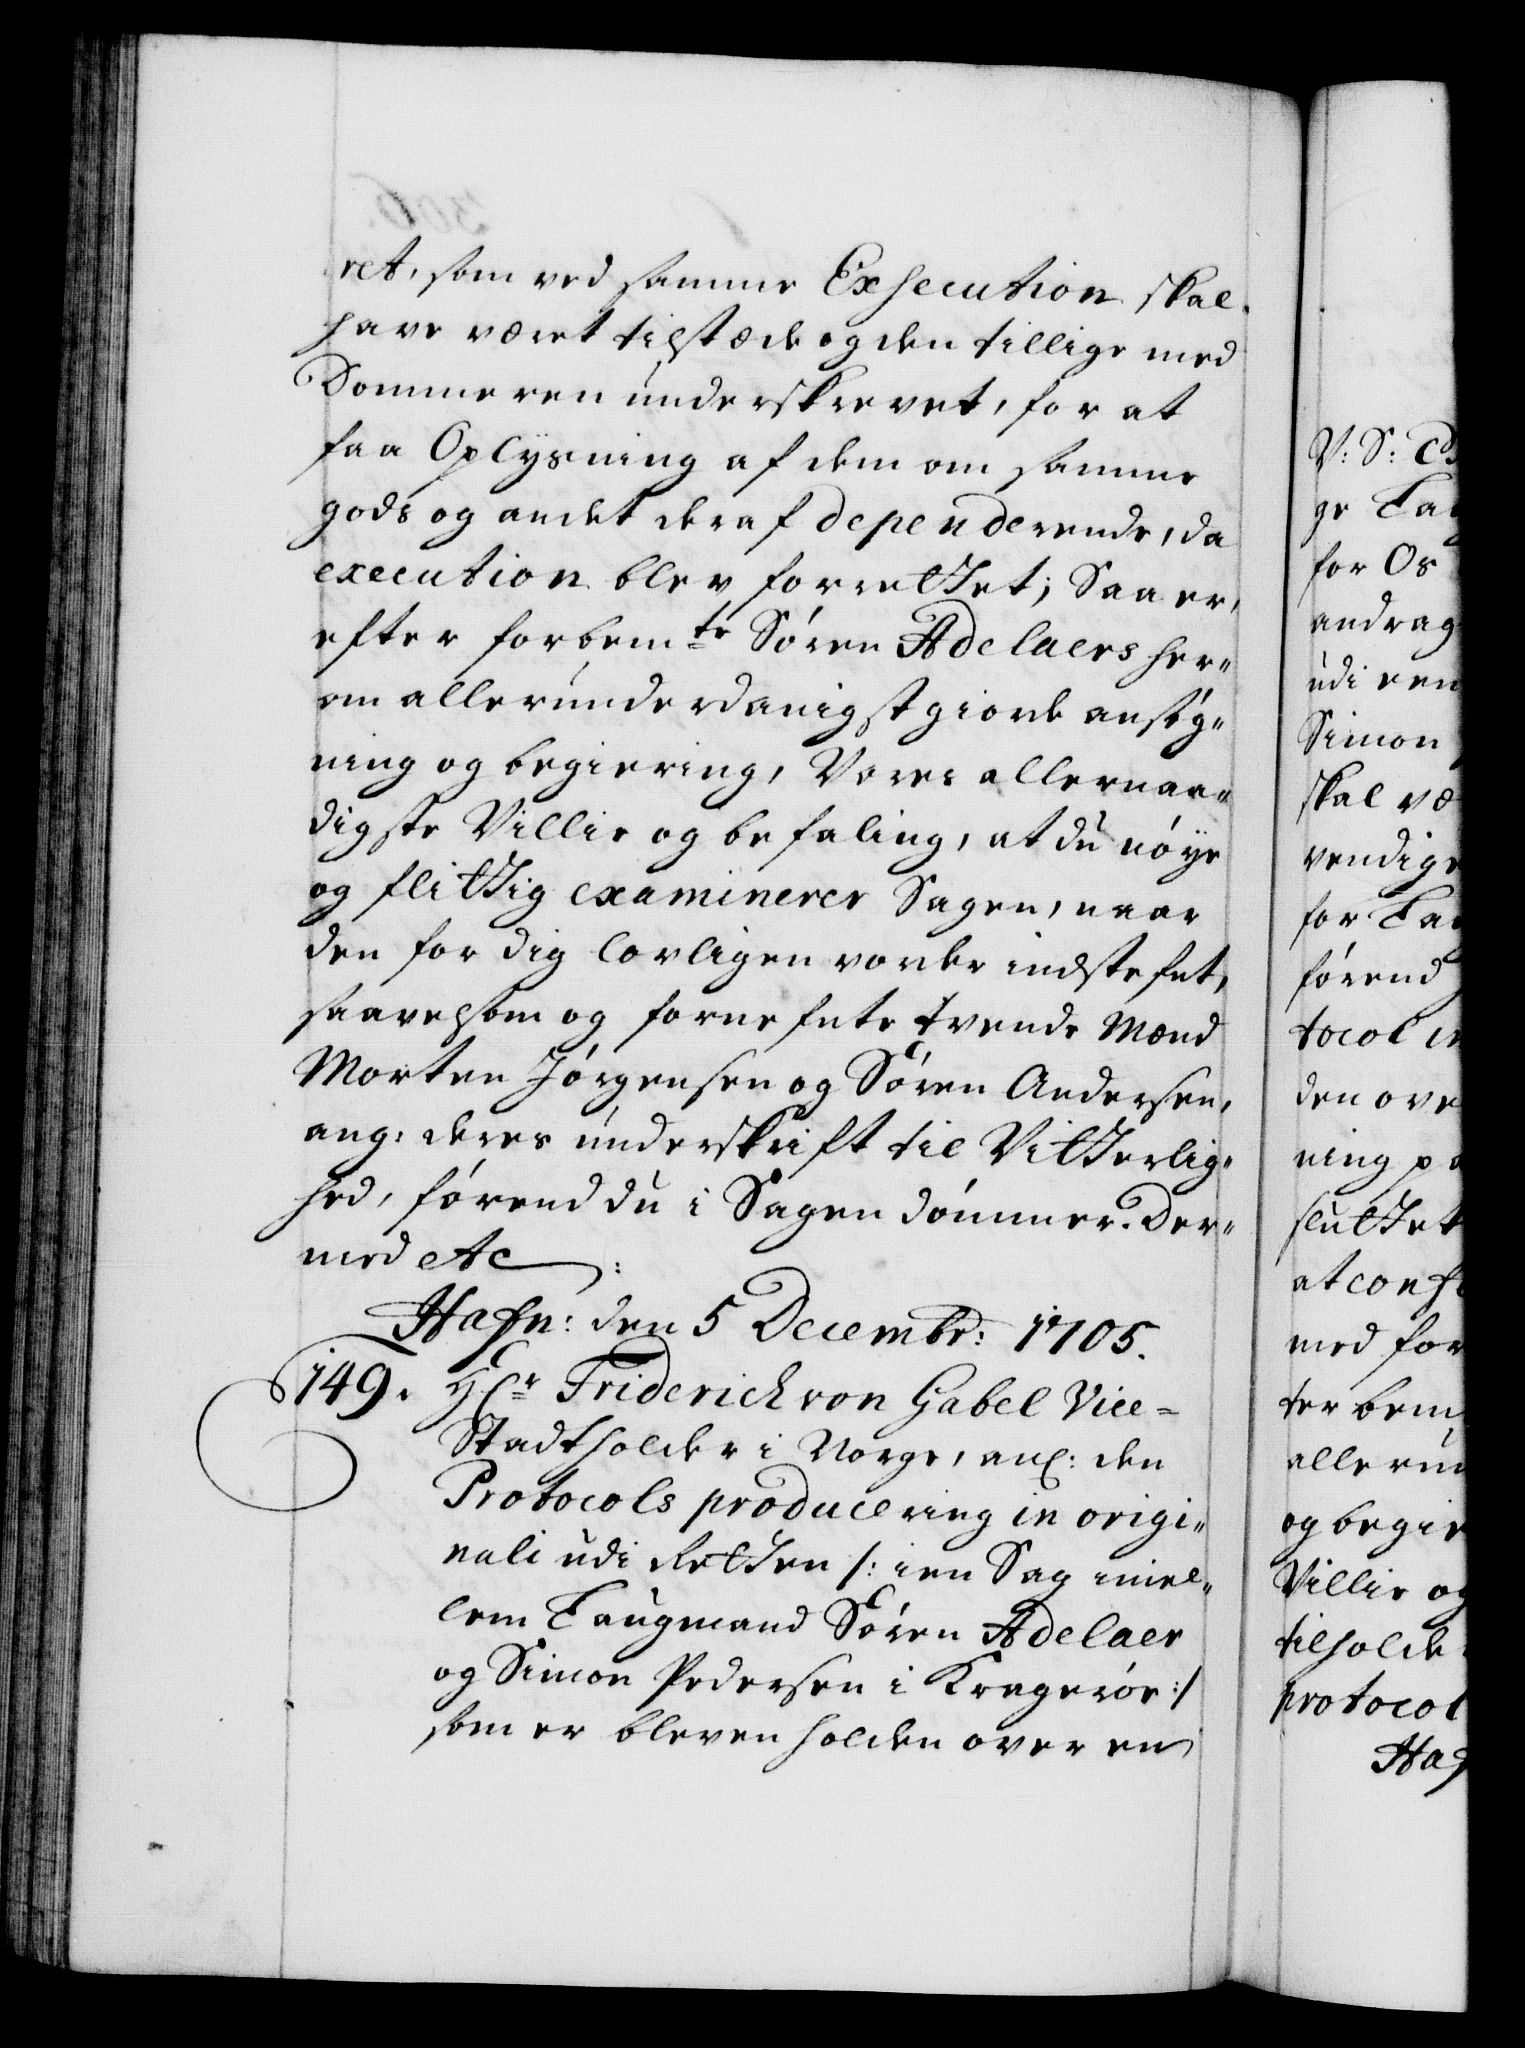 ret, som ved samme Exsecution skal
have været tilstæde og den tillige med
Dommeren underskrevet, for at
faa Oplysning af dem om samme
gods og andet deraf dependerende, da
execution blev forrettet; Saa er,
efter forbemte Sören Adelaers her„
om allerunderdanigst giorde ansög„
ning og begiering, Vores allernaa„
digste Villie og befaling, at du nöye
og flittig examinerer Sagen, naar
den for dig lovligen vorder indstefnt,
saavelsom og fornefnte tvende Mænd
Morten Jörgensen og Sören Andersen,
ang: deres underskrift til Vitterlig„
hed, förend du i Sagen dömmer. Der„
med etc:
Hafn: den 5 Decembr: 1705.
149. Hr Friderich von Gabel Vice=
Stadtholder i Norge, anl: den
Protocols producering in origi„
nali udi Retten /: i en Sag imel„
lem Laugmand Sören Adelaer
og Simon Pedersen i Krageröe :/
som er bleven holden over en
V: S:
ge Lau
for Os
andrag
udi een
Simon
skal væ
vendige
for Lau
förend
tocol in
den ove
ning pa
sluttet
at conf
med for
ter bem
allerun
og begie
Villie og
tilholde
protocol
Haf